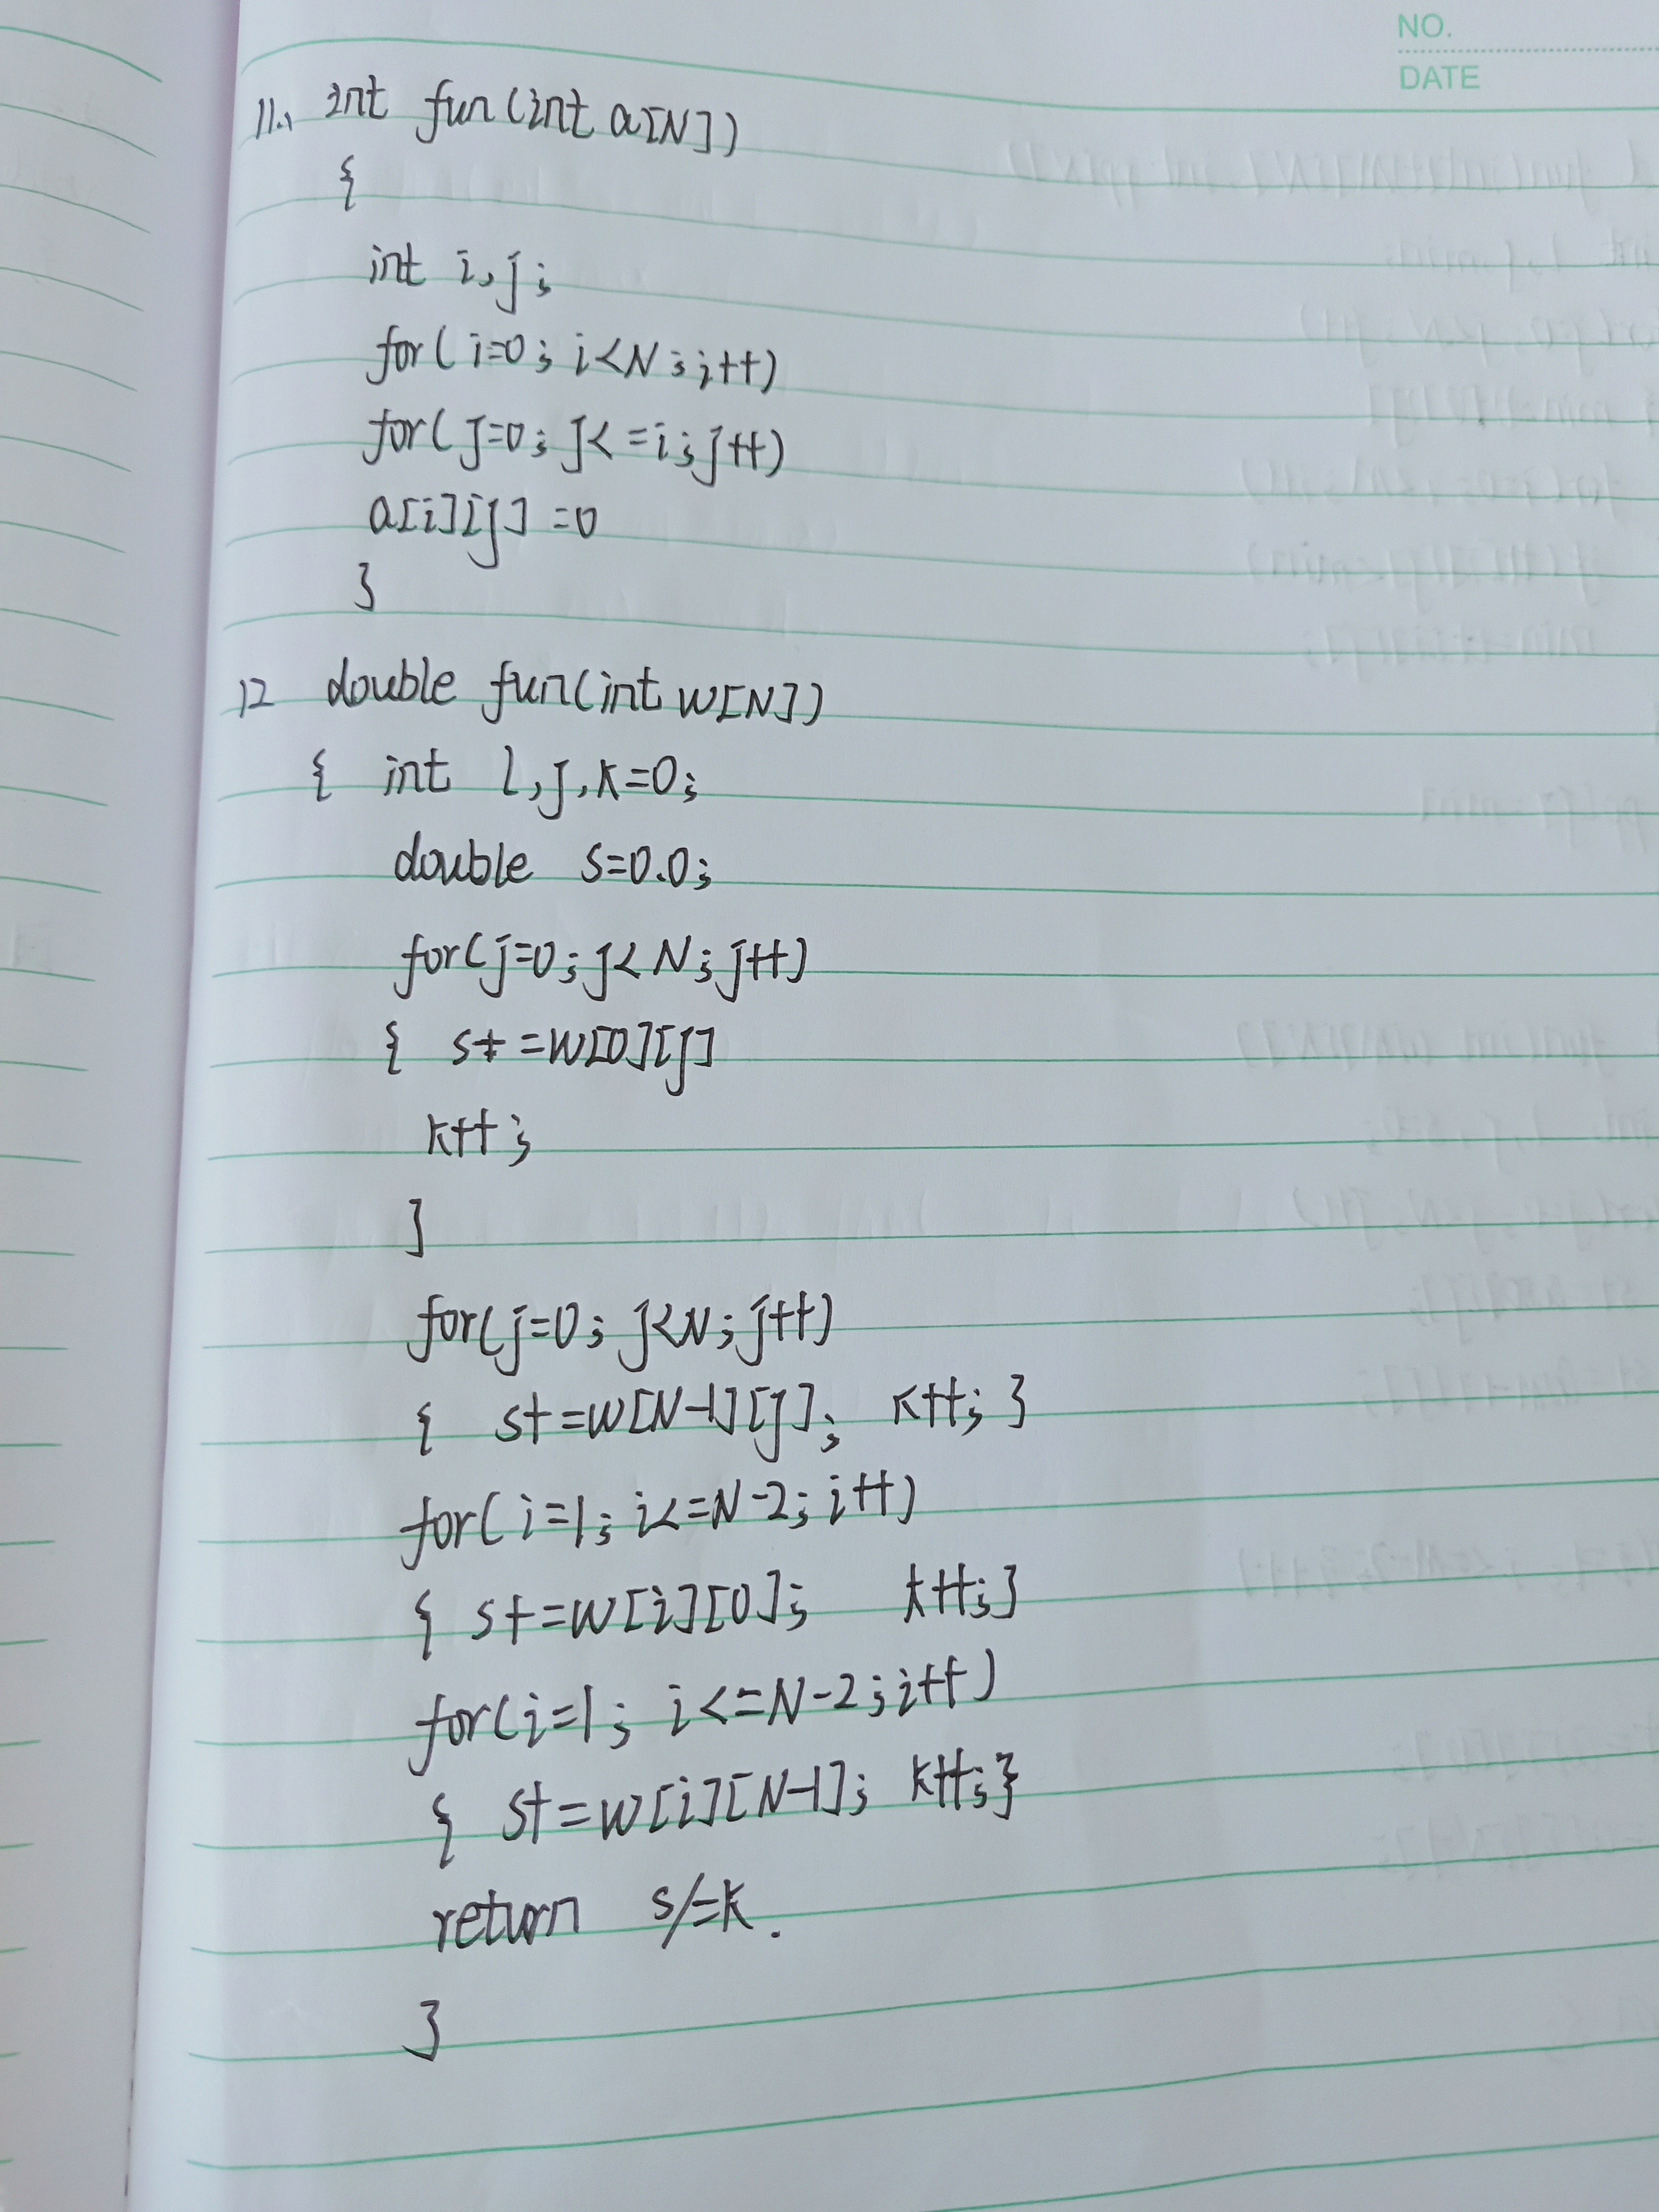 NO.
DATE
11. int fun(int a[N])
{
int i,j;
for(i=0; i<N; i++)
for(j=0; j<=i; j++)
a[i][j]=0
}
12 double fun(int w[N])
{ int i,j,k=0;
double s=0.0;
for(j=0;j<N;j++)
{ s+=w[0][j]
k++;
}
for(j=0; j<N; j++)
{ s+=w[N-1][j]; k++; }
for(i=1; i<=N-2; i++)
{ s+=w[i][0]; k++;}
for(i=1; i<=N-2; i++)
{ s+=w[i][N-1]; k++;}
return s/=k.
}